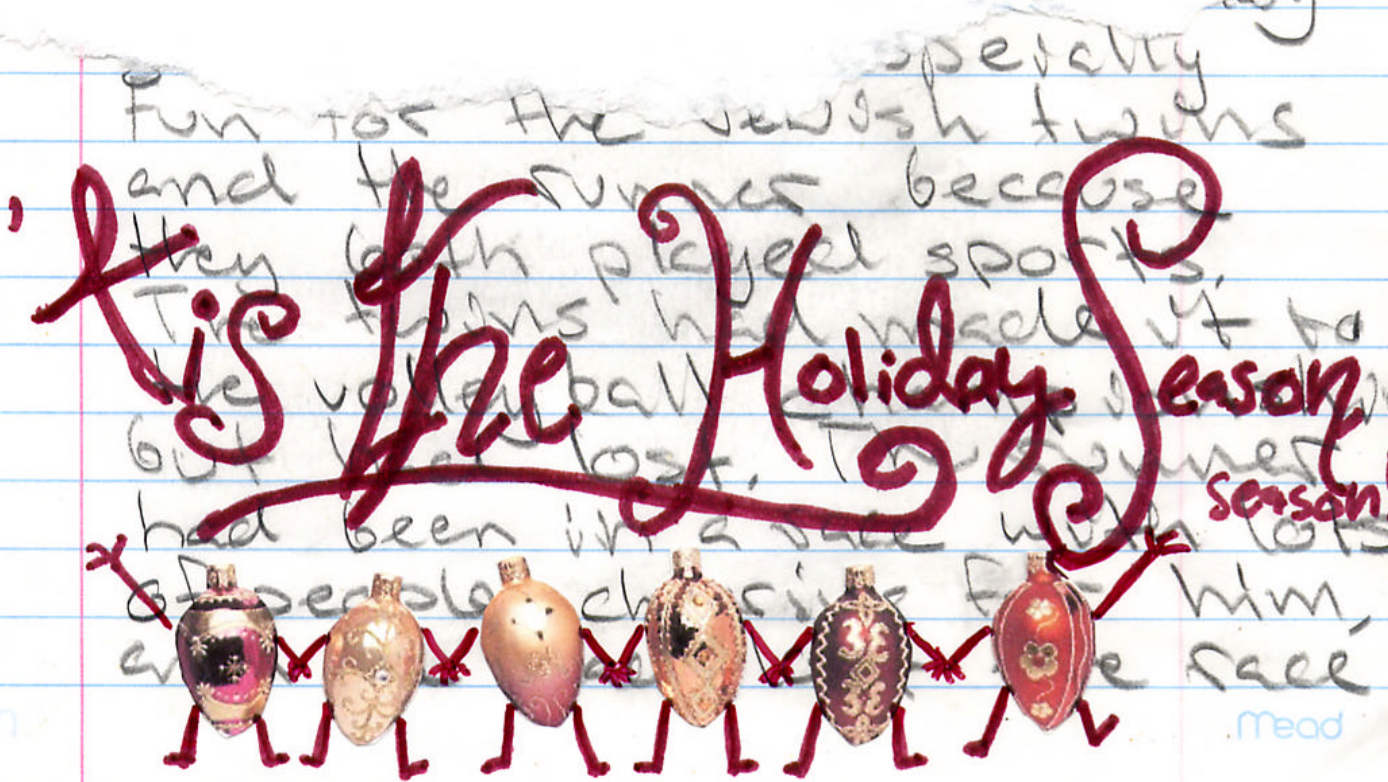 specially
fun for the Jewish twins
and the runner because
they both played sports.
The twins had made it to
the volleyball
but lost. The runner
had been in a race with lots
of people cheering for him,
race
'tis the Holiday Season
season
Mead